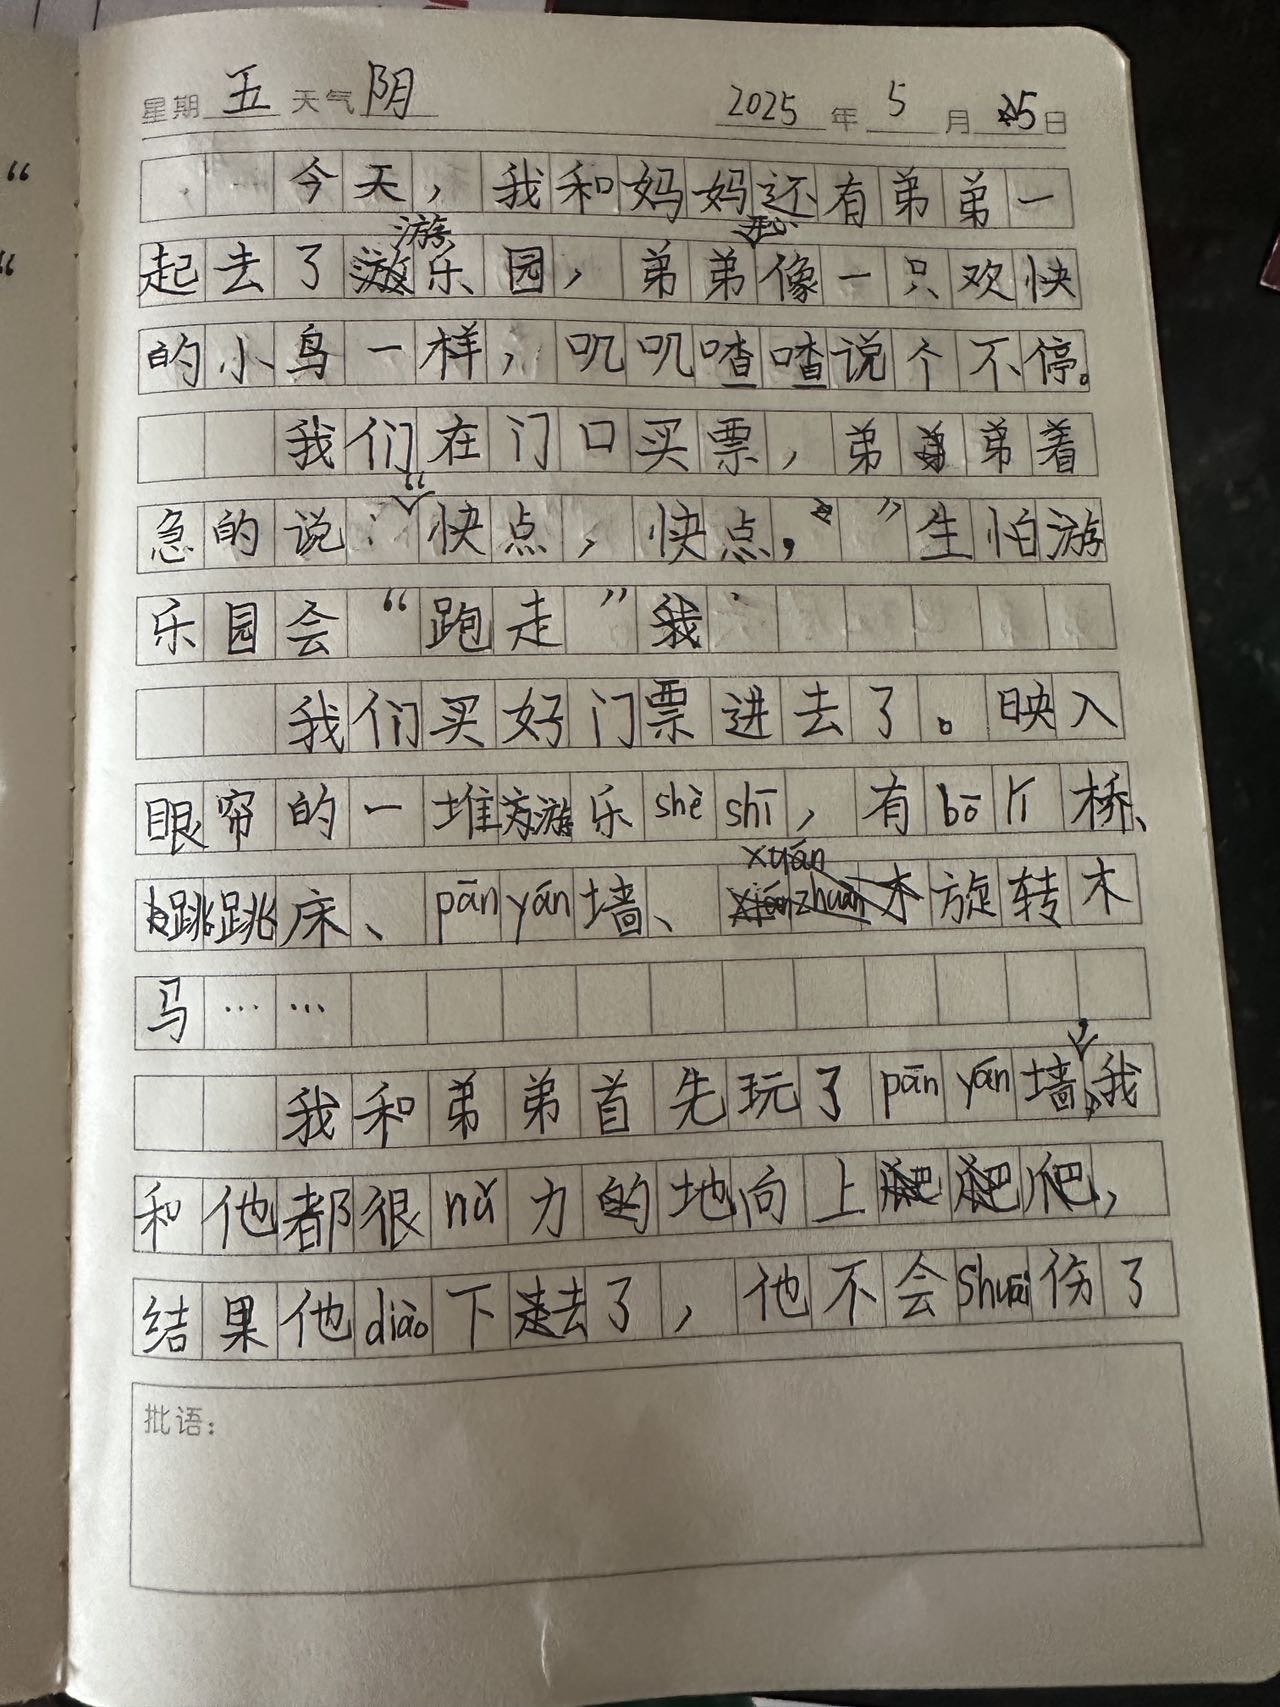 “
“
星期 五 天气 阴 2025 年 5 月 25 日
今天，我和妈妈还有弟弟一
游
起去了乐园，弟弟像一只欢快
的小鸟一样，叽叽喳喳说个不停。
我们在门口买票，弟弟着
急的说：“快点，快点，”生怕游
乐园会“跑走”
我们买好门票进去了。映入
眼帘的一堆游乐shè shī，有bō lí桥、
跳跳床、pān yán墙、旋转木
xuán
马……
我和弟弟首先玩了pān yán墙，我
和他都很nǔ力地向上爬，
结果他diào下去了，他不会Shuāi伤了
批语：